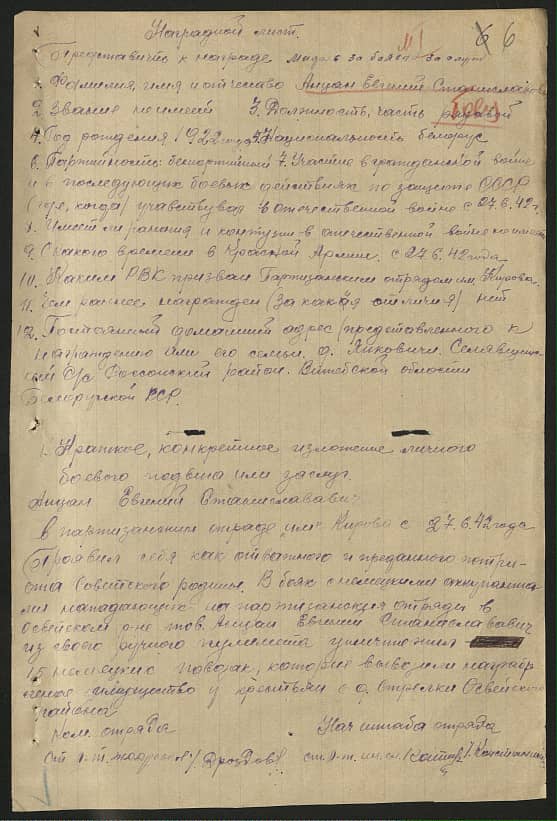 Наградной лист.
М1
6 6
Представить к награде
1. Фамилия, имя и отчество Анцан Евгений
2. Звание не имеет 3. Должность, часть рядовой
боец
4. Год рождения 1922 5. Национальность белорус
6. Партийность беспартийный 7. Участие в гражданской войне
и в последующих боевых действиях по защите СССР
(где, когда) участвувал в отечественной войне с 27.6.42г.
8. Имеет ли ранения и контузии в отечественной войне не имеет
9. С какого времени в Красной Армии. с 27.6.42 года
10. Каким РВК призван Партизанским отрядом им. Кирова.
11. Чем раннее награжден (за какая отличия) нет
12. Постоянный домашний адрес (представленного к
награждению или его семьи. д. Янковичи.
с/с Россонский район. Витебской области
Белоруской ССР.
1. Краткое, конкретное изложение личного
боевого подвига или заслуг
Анцан Евгений
в партизанским отраде "им" Кирова с 27.6.42 года
Проявил себя как отважного и преданного патри-
ота Советского родины. В боях с немецкими
нападающих на партизанския отряды в
Освейском р-не тов. Анцан Евгений Станаславович
из своего ручного пулимета уничтожил
15 немецких повозак, которие вывозили награб-
леное имущество у крестьян с д. Стрелки Освейского
района
Ком. отряда Нач штаба отряда
ст. л-т. /Дроздов/ ст. л-т.